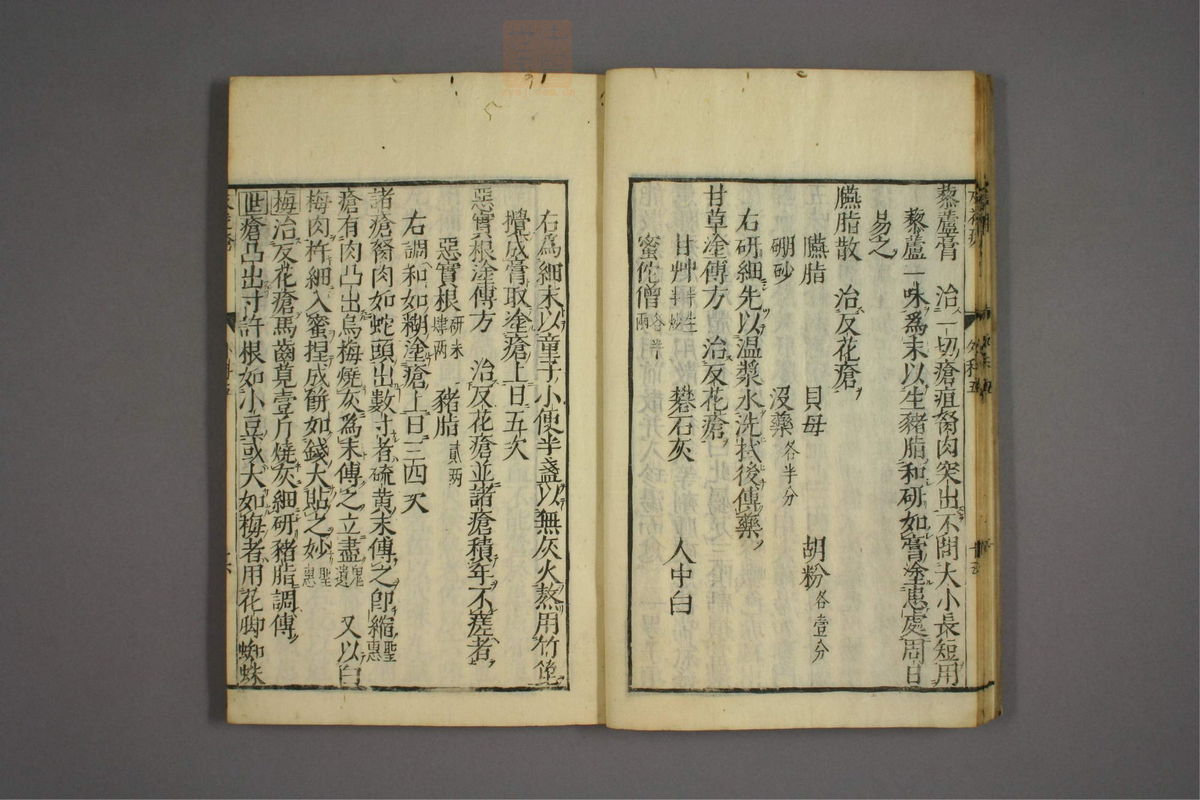 藜蘆膏　治一切瘡疽胬肉突出不問大小長短用
藜蘆一味爲末以生豬脂和研如膏塗患處周日
易之
臙脂散　治反花瘡
臙脂　貝母　胡粉各壹分
硼砂　沒藥各半分
右研細先以温漿水洗拭後傅藥
甘草塗傅方　治反花瘡
甘艸半生半燃　礬石灰　人中白
蜜佗僧各半兩
右爲細末以童子小便半盞以無灰火熬用竹篦
攪成膏取塗瘡上日五次
惡實根塗傅方　治反花瘡並諸瘡積年不瘥者
惡實根研末肆兩　豬脂貳兩
右調和如糊塗瘡上日三四次
諸瘡胬肉如蛇頭出數寸者硫黄末傅之卽縮聖惠
瘡有肉凸出烏梅燒灰爲末傅之立盡鬼遺　又以白
梅肉杵細入蜜捏成餅如錢大貼之妙聖惠
梅治反花瘡馬齒莧壹斤燒灰細研豬脂調傅
世瘡凸出寸許根如小豆或大如梅者用花脚蜘蛛